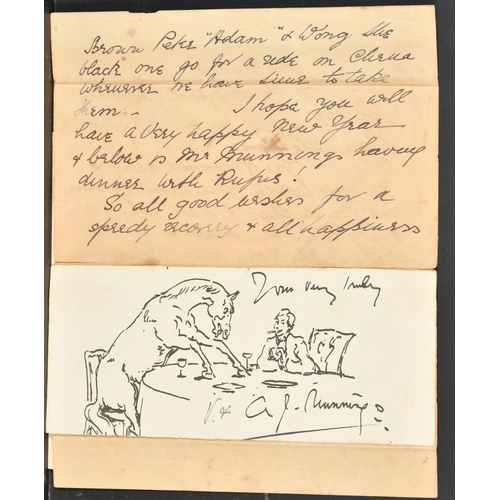 Brown Peke "Adam" & Wong the
black one go for a ride on Cherua
whenever we have time to take
them. I hope you will
have a very happy New Year
& below is Mr Munnings having
dinner with Rufus!
So all good wishes for a
speedy recovery & all happiness
Yours very truly
V. & A. J. Munnings